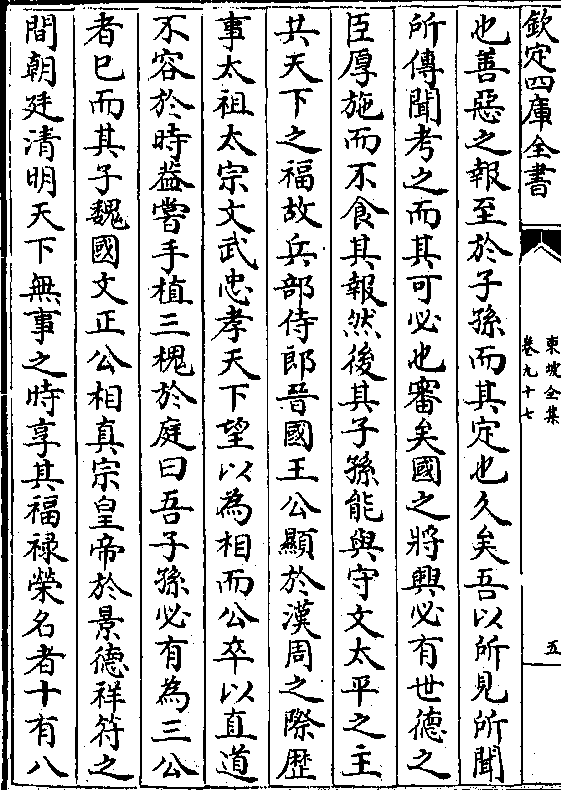 欽定四庫全書
東坡全集
卷九十七
五
也善惡之報至於子孫而其定也久矣吾以所見所聞
所傳聞考之而其可必也審矣國之將興必有世德之
臣厚施而不食其報然後其子孫能與守文太平之主
共天下之福故兵部侍郎晉國王公顯於漢周之際歴
事太祖太宗文武忠孝天下望以為相而公卒以直道
不容於時葢嘗手植三槐於庭曰吾子孫必有為三公
者已而其子魏國文正公相真宗皇帝於景德祥符之
間朝廷清明天下無事之時享其福禄榮名者十有八